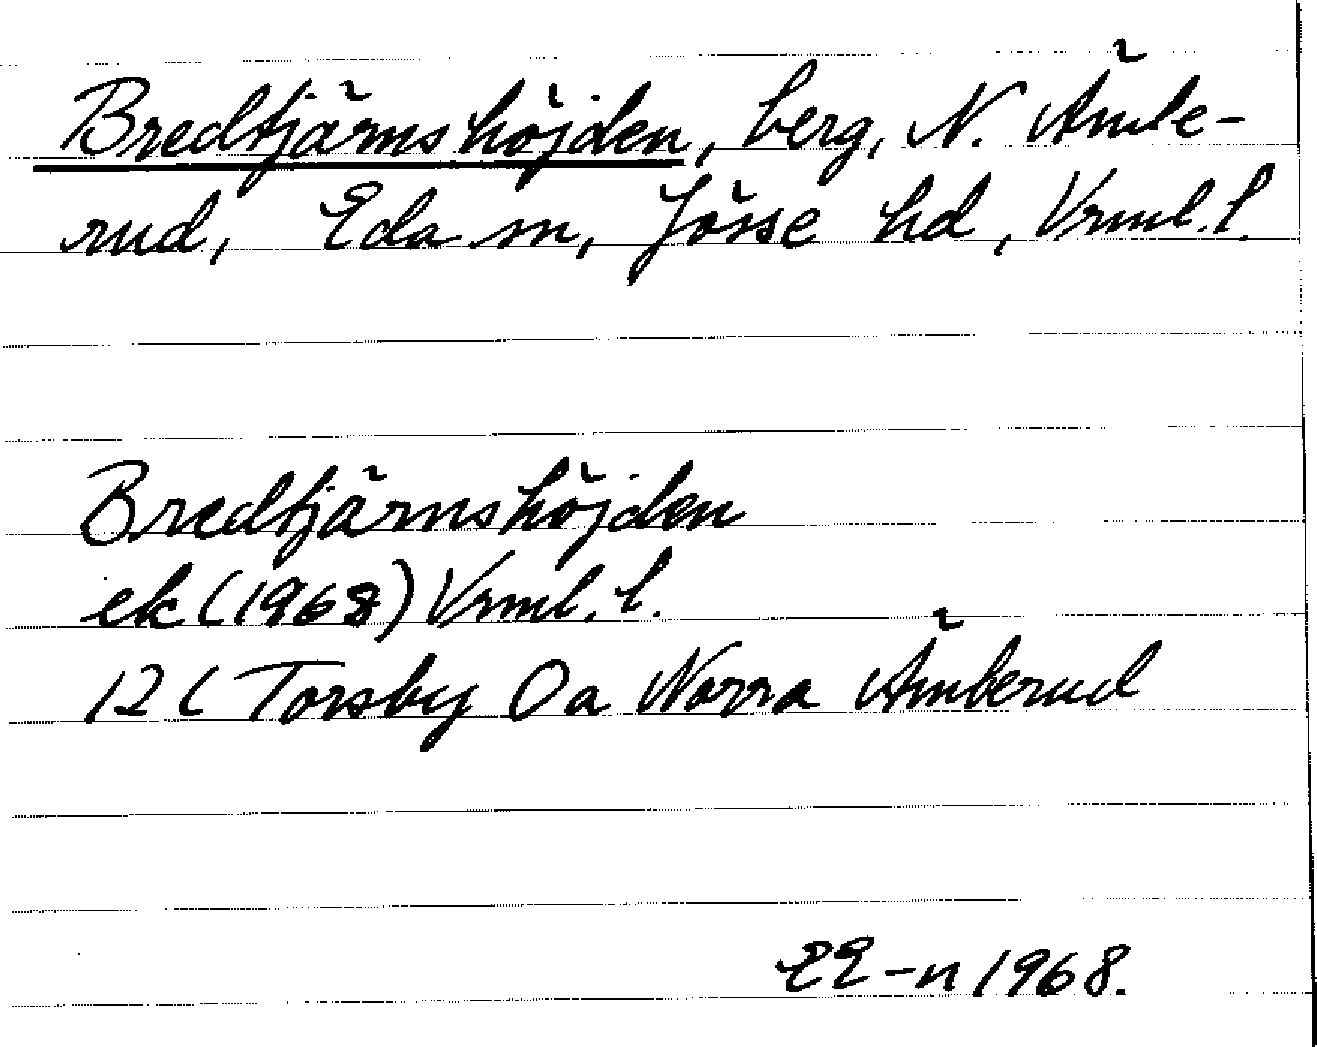 Bredtjärnshöjden, berg, N. Ämbe-
rud, Eda sn, Jösse hd, Vrml. l.
Bredtjärnshöjden
ek (1968) Vrml. l.
12 C Torsby 0a Norra Ämberud
EE-n 1968.